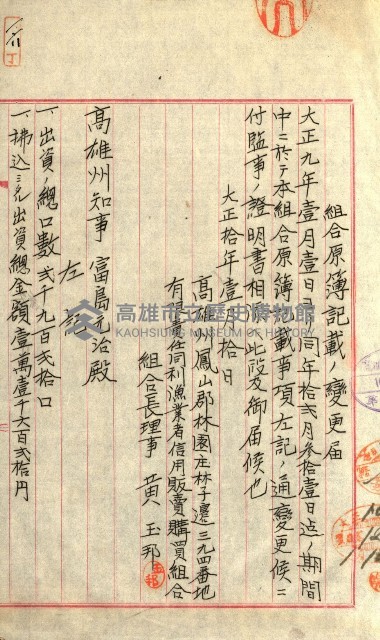 組合原簿記載ノ變更届
大正九年壹月壹日 同年拾貳月參拾壹日迄ノ期間
中ニ於テ本組合原簿 載事項左記ノ通變更候ニ
付監事ノ證明書相 此段及御届候也
大正拾年壹 拾日
高雄州鳳山郡林園庄林子邊三九四番地
有限責任同利漁業者信用販賣購買組合
組合長理事 黄玉邦
高雄州知事 富島元治殿
左 記
一、出資ノ總口數 貳千九百貳拾口
一、拂込ミタル出資總金額 壹萬壹千六百貳拾円
高雄市立歷史博物館
KAOHSIUNG MUSEUM OF HISTORY
丁